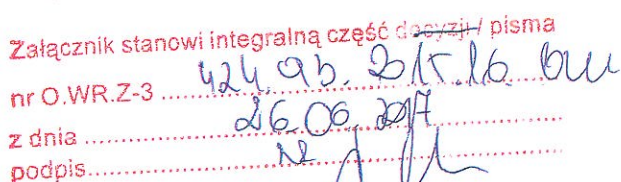 Załącznik stanowi integralną część decyzji / pisma
nr O.WR.Z-3 ..... 424.95.2015.16.bw
z dnia ..... 26.06.2017
podpis.....